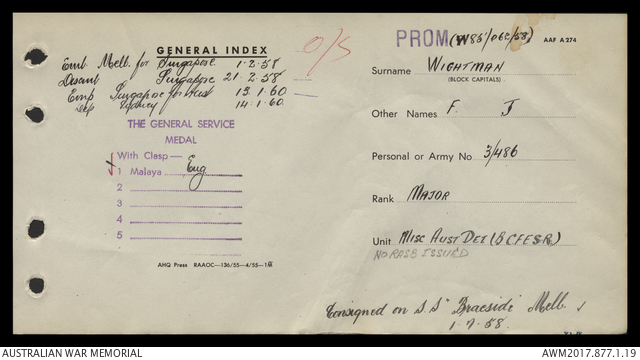 GENERAL INDEX
O/S
Emb Mell. for Singapore 1.2.58
Disemb Singapore 21.2.58
Emp Singapore for Aust 13.1.60
Sydney 14.1.60.
THE GENERAL SERVICE
MEDAL
With Clasp—
1 Malaya Eng
2
3
4
5
AHQ Press RAAOC—136/55—4/55—1M
PROM (W85/Dec/58) AAF A 274
Surname WIGHTMAN
(BLOCK CAPITALS)
Other Names F. J
Personal or Army No 3/486
Rank MAJOR
Unit MISC AUST DET (BCFESR)
NO RASB ISSUED
Consigned on S.S "Braeside" Melb.
1.7.58.
AUSTRALIAN WAR MEMORIAL
AWM2017.877.1.19